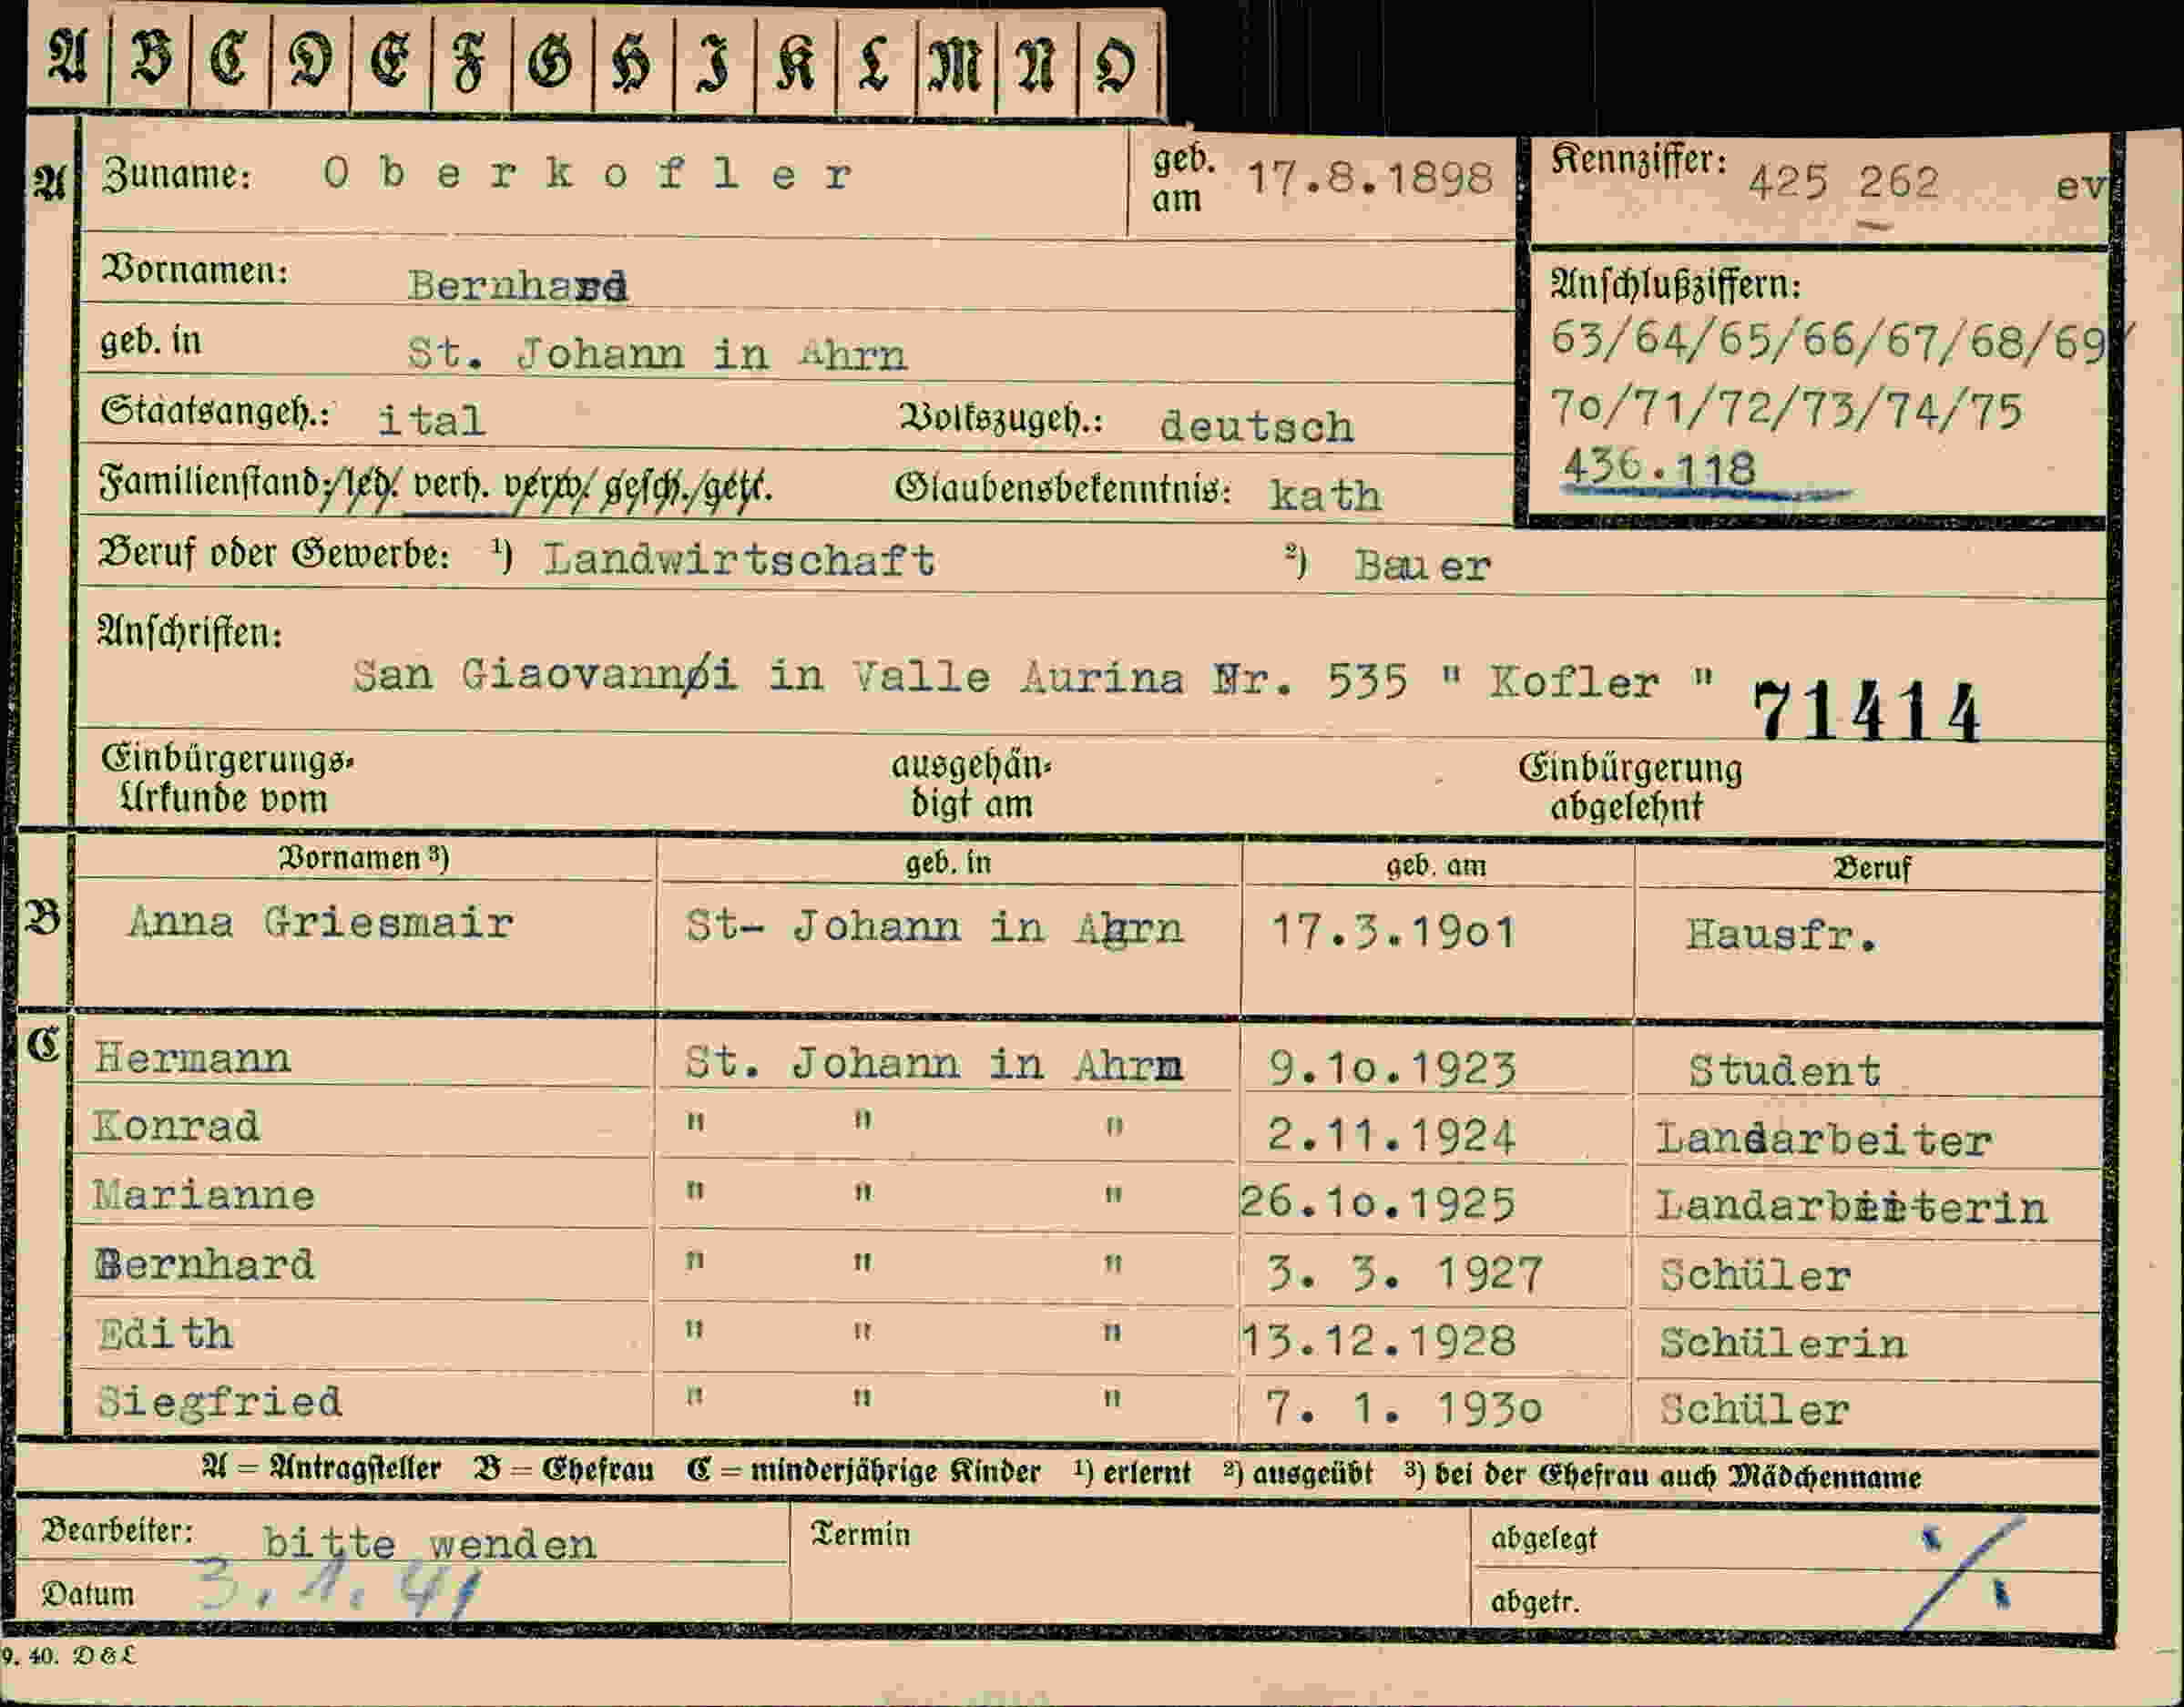 A B C D E F G H I K L M N O
A Zuname: Oberkofler geb. am 17.8.1898 Kennziffer: 425 262 ev
Vornamen: Bernhard
Anschlußziffern:
geb. in St. Johann in Ahrn
63/64/65/66/67/68/69/
Staatsangeh.: ital Volkszugeh.: deutsch
70/71/72/73/74/75
Familienstand: led. verh. verw. gesch./getr. Glaubensbekenntnis: kath
436.118
Beruf oder Gewerbe: ¹) Landwirtschaft ²) Bauer
Anschriften:
San Giaovannøi in Valle Aurina Nr. 535 " Kofler " 71414
Einbürgerungs-Urkunde vom ausgehändigt am Einbürgerung abgelehnt
Vornamen ³) geb. in geb. am Beruf
B Anna Griesmair St- Johann in Ahrn 17.3.19o1 Hausfr.
C Hermann St. Johann in Ahrn 9.1o.1923 Student
Konrad " " " 2.11.1924 Landarbeiter
Marianne " " " 26.1o.1925 Landarbeiterin
Bernhard " " " 3. 3. 1927 Schüler
Edith " " " 13.12.1928 Schülerin
Siegfried " " " 7. 1. 193o Schüler
A = Antragsteller B = Ehefrau C = minderjährige Kinder ¹) erlernt ²) ausgeübt ³) bei der Ehefrau auch Mädchenname
Bearbeiter: bitte wenden Termin abgelegt
Datum 3.1.41 abgetr.
9. 40. D & L